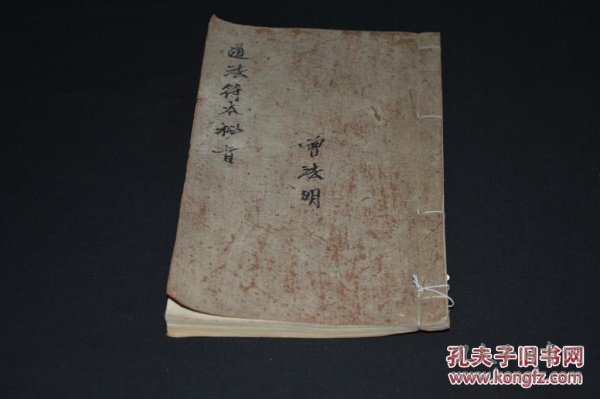 道法符本秘旨
曾法明
孔夫子旧书网
www.kongfz.com